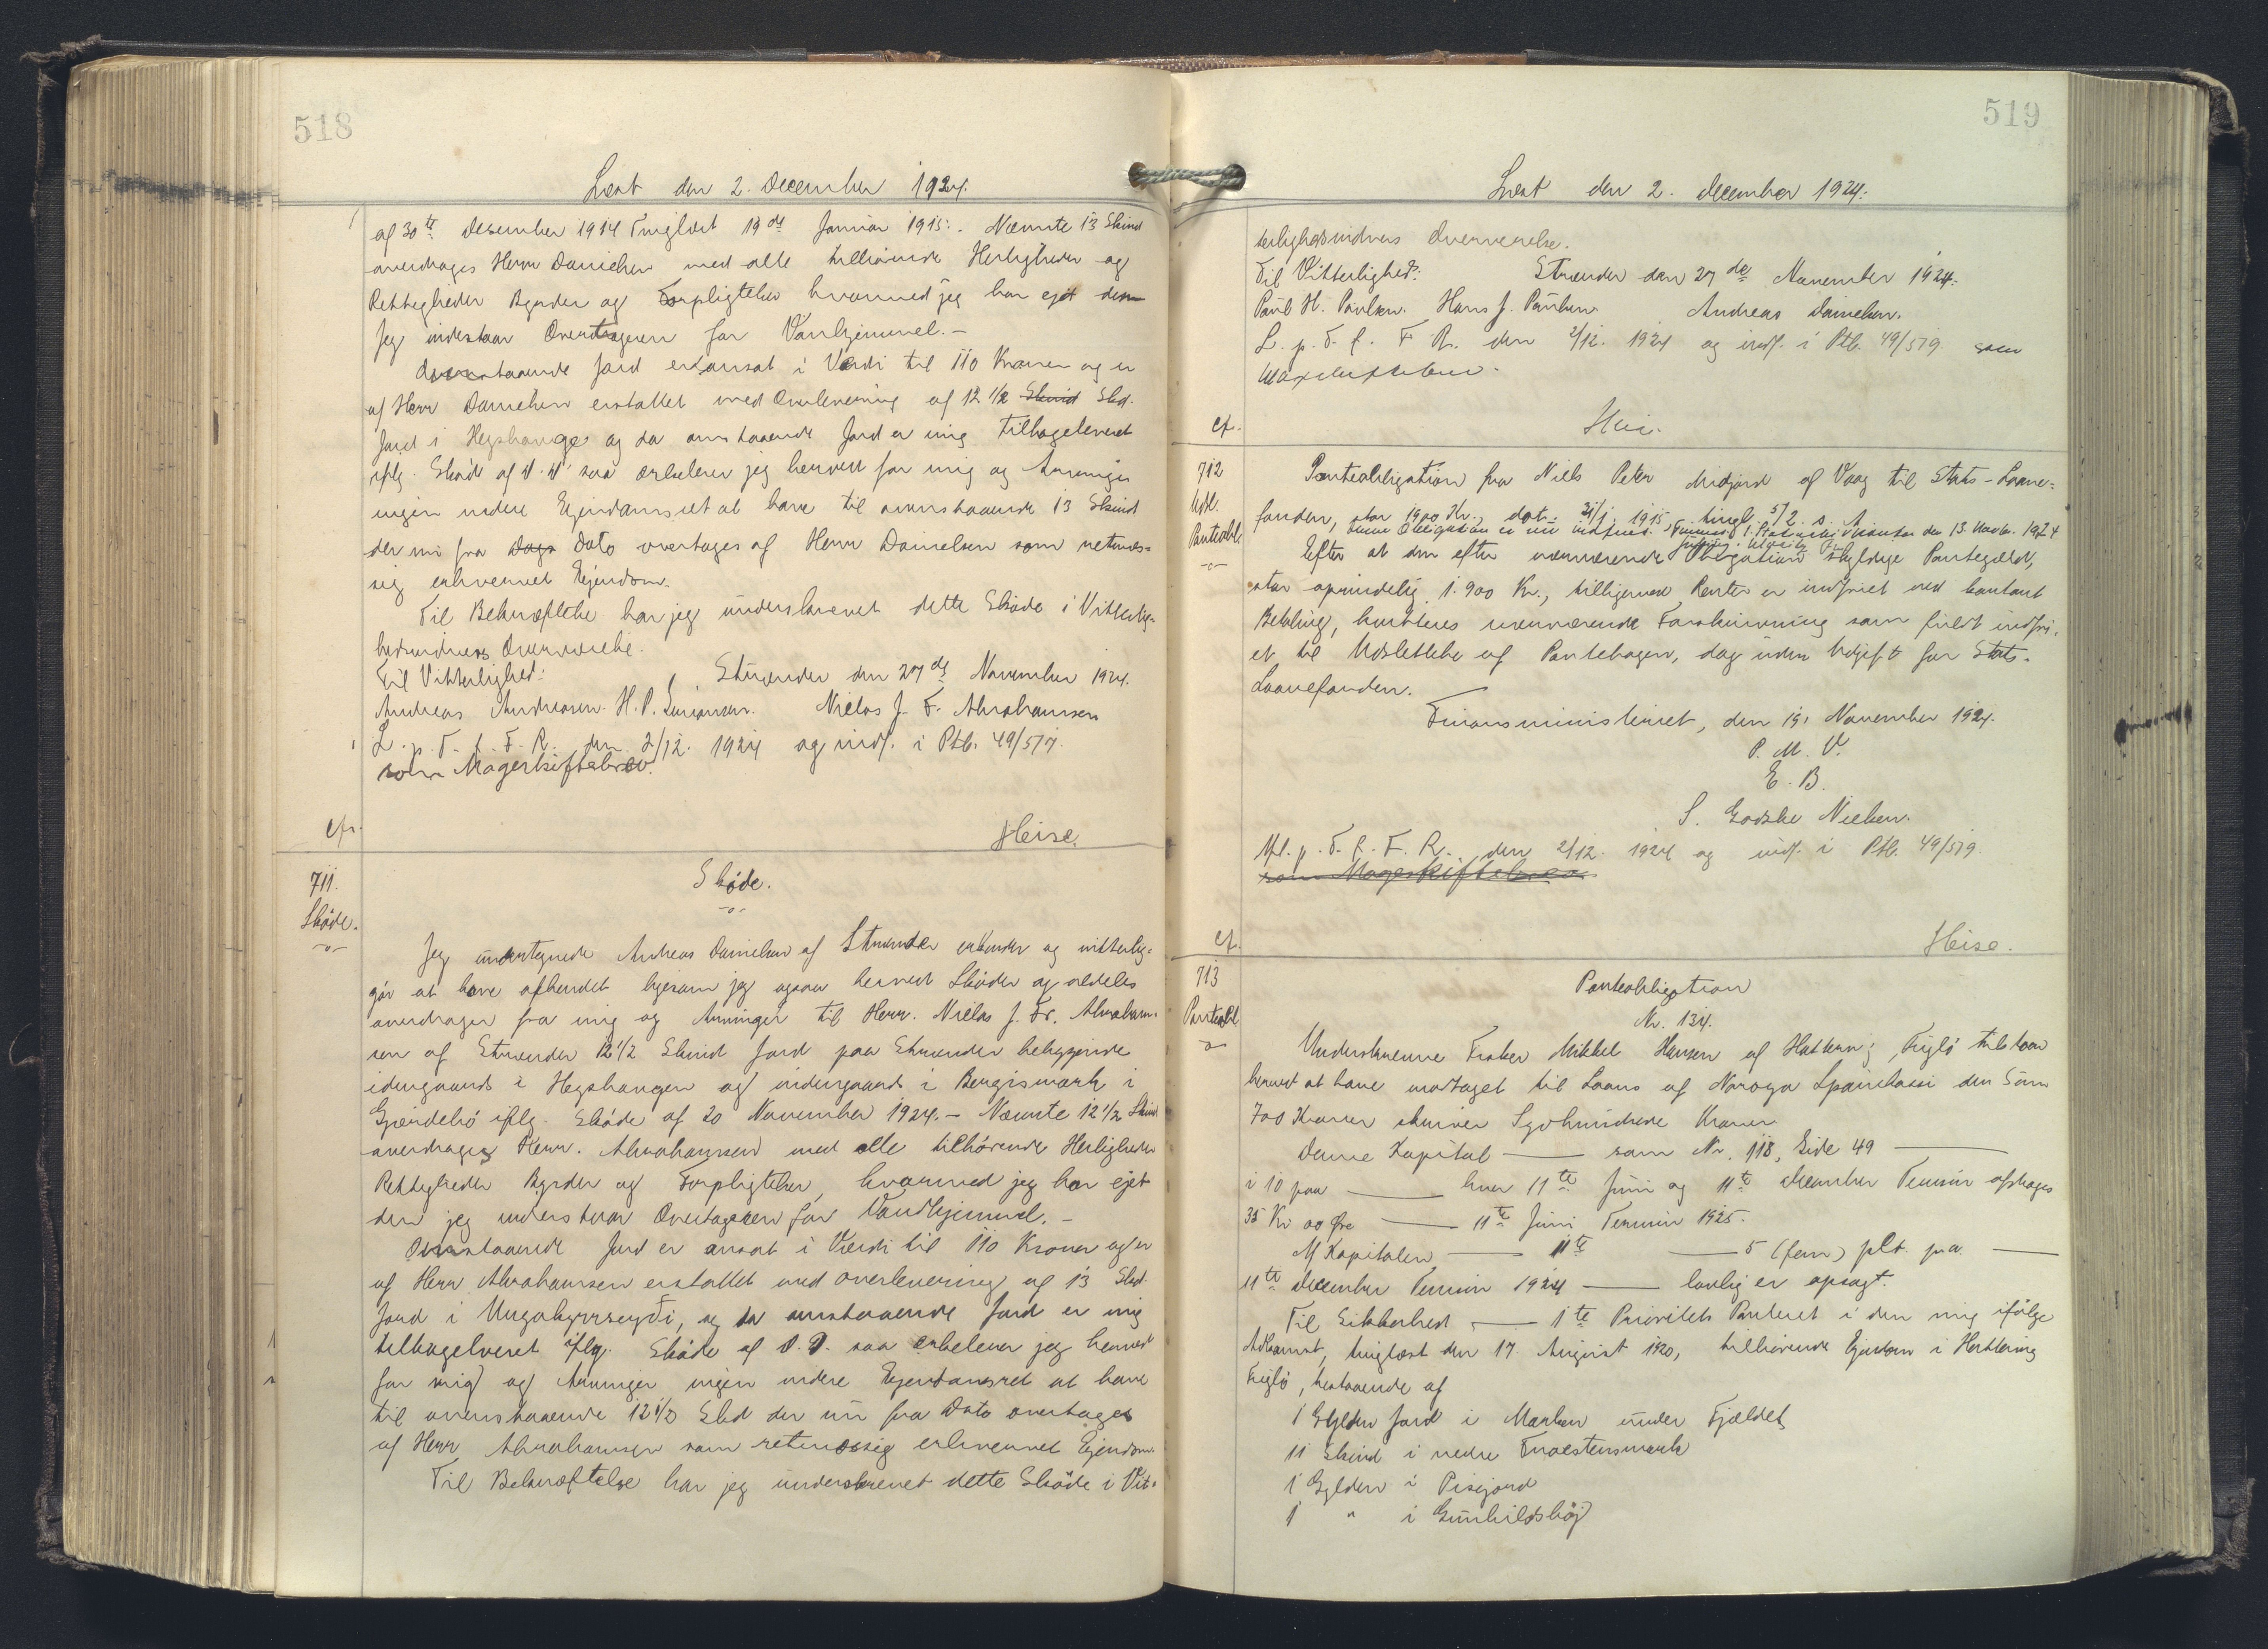 518
Læst den 2. December 1924.
af 30te Desember 1914 Tinglæst 19de Januar 1915. Nævnte 13 Skind
overdrages Herr Danielsen med alle tilhørende Herligheder og
Rettigheder Byrder og Forpligtelser hvormed jeg har ejet dem
Jeg indestaar Overtageren for Vanhjemmel.-
Ovenstaaende Jord er ansat i Værdi til 110 Kroner og er
af Herr Danielsen erstattet med Overlevering af 12 1/2 Skind Skd.
Jord i Hegshange og da ovenstaaende Jord er mig tilbageleveret
iflg. Skøde af d. d. saa erklærer jeg herved for mig og Arvinger
ingen videre Ejendomsret at have til ovenstaaende 13 Skind
der nu fra Dags Dato overtages af Herr Danielsen som retmæs-
sig erhvervet Ejendom.
Til Bekræftelse har jeg underskrevet dette Skøde i Vitterlig-
hedsvidners Overværelse.
Til Vitterlighed: Strænder den 27de November 1924.
Andreas Andreasen. H. P. Nielas J. F. Abrahamsen
L. p. T. f. F. R. den 2/12. 1924 og indf. i Ptb. 49/517.
som Mageskiftebrev.
cfr.
Heise.
711.
Skøde.
Skøde.
Jeg undertegnede Andreas Danielsen af Strænder erkender og vitterlig-
gør at have afhendet ligesom jeg ogsaa herved Skøder og aldeles
overdrager fra mig og Arvinger til Herr. Nielas J. Fr. Abraham-
sen af Strænder 12 1/2 Skind Jord paa Strænder beliggende
indengaards i Hegshangen og indengaards i Bergismark i
Gjendelsø iflg. Skøde af 20 November 1924.- Nævnte 12 1/2 Skind
overdrages Herr. Abrahamsen med alle tilhørende Herligheder
Rettigheder Byrder og Forpligtelser, hvormed jeg har ejet
den jeg indestaar Overtageren for Vandhjemmel.-
Ovenstaaende Jord er ansat i Værdi til 110 Kroner og er
af Herr Abrahamsen erstattet med overlevering af 13 Skd.
Jord i og da ovenstaaende Jord er mig
tilbageleveret iflg. Skøde af D. D. saa erklærer jeg herved
for mig og Arvinger ingen videre Ejendomsret at have
til ovenstaaende 12 1/2 Skd der nu fra Dato overtages
af Herr Abrahamsen som retmæssig erhvervet Ejendom.
Til Bekræftelse har jeg underskrevet dette Skøde i Vit-
519
Læst den 2. December 1924.
terlighedsvidners Overværelse.
Til Vitterlighed: Strænder den 27de November 1924.
Paul H. Paulsen. Hans J. Paulsen. Andreas Danielsen.
L. p. T. f. F. R. den 2/12. 1924 og indf. i Ptb. 49/519 som
Mageskiftebrev.
cf.
Heise.
712
Udsl.
Panteobl
Panteobligation fra Niels Peter Midjord af Vaag til Stats-Laane-
fonden, stor 1900 Kr., dat. 31/1. 1915 tingl. 5/2. s. A.
Denne Obligation er nu indfriet. den 13. Novbr. 1924
Efter at den efter nærværende Obligation skyldige Pantegæld,
stor oprindelig 1.900 Kr., tilligemed Renter er indfriet ved kontant
Betaling, kvitteres nærværende Forskrivning som fuldt indfri-
et til Udslettelse af Pantebogen, dog uden Udgift for Stats-
Laanefonden.
Finansministeriet, den 19. November 1924.
P. M. V.
E. B.
S. Godske Nielsen.
Afl. p. T. f. F. R. den 2/12. 1924 og indf. i Ptb. 49/519.
som Mageskiftebrev
cf.
Heise.
713
Panteobl
Panteobligation
Nr. 134.
Underskrevne Fisker Mikkel Hansen af Hattervig, Fuglø tilstaar
herved at have modtaget til Laans af Noroya Sparikassi den Sum
700 Kroner skriver Syvhundrede Kroner
Denne Kapital — som Nr. 118, Side 49 —
i 10 paa — hver 11te Juni og 11te December Termin afdrages
35 Kr 00 Øre — 11te Juni Termin 1925.
Af Kapitalen — 11te — 5 (fem) pCt. p.a. —
11te December Termin 1924 — lovlig er opsagt.
Til Sikkerhed — 1te Prioritets Panteret i den mig ifølge
Adkomst, tinglæst den 17. August 1920, tilhørende Ejendom i Hattervig
Fuglø, bestaaende af
1 Gylden Jord i Marken under Fjældet
11 Skind i nedre
1 Gylden i
1 " i Gunhildshøj